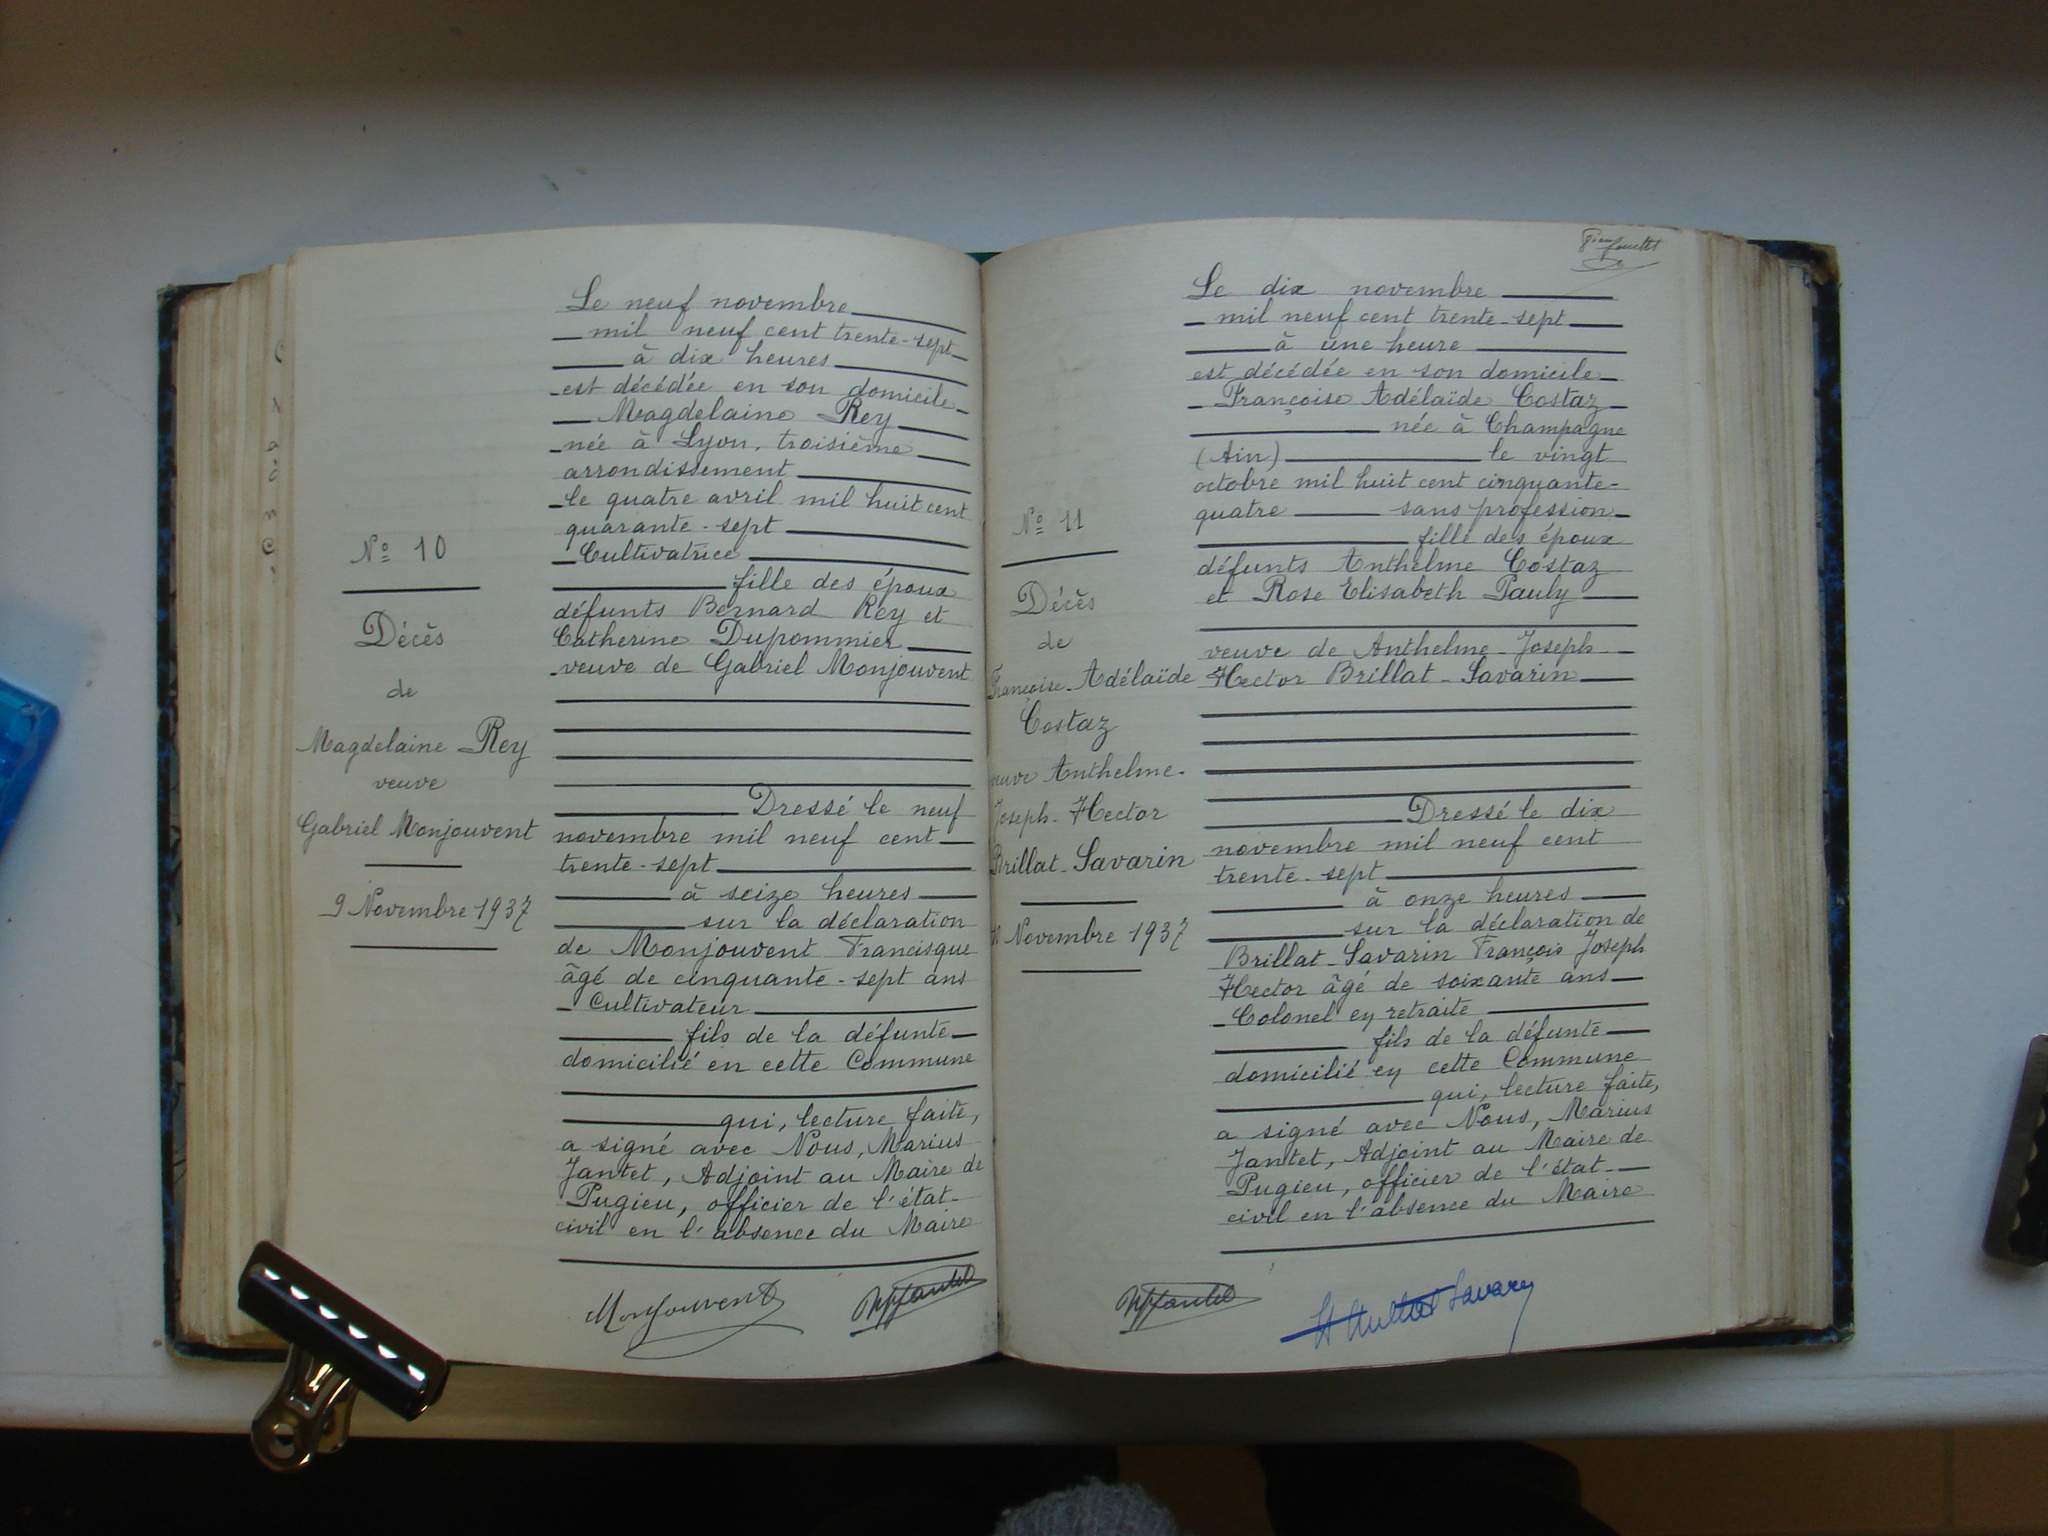 Nº 10
Décès
de
Magdelaine Rey
veuve
Gabriel Monjouvent
9 Novembre 1937
Le neuf novembre
mil neuf cent trente-sept
à dix heures
est décédée en son domicile
Magdelaine Rey
née à Lyon, troisième
arrondissement
le quatre avril mil huit cent
quarante-sept
Cultivatrice
fille des époux
défunts Bernard Rey et
Catherine Dupommier
veuve de Gabriel Monjouvent
Dressé le neuf
novembre mil neuf cent
trente-sept
à seize heures
sur la déclaration
de Monjouvent Francisque
âgé de cinquante-sept ans
Cultivateur
fils de la défunte
domicilié en cette Commune
qui, lecture faite,
a signé avec Nous, Marius
Jantet, Adjoint au Maire de
Pugieu, officier de l'état-
civil en l'absence du Maire
Monjouvent
Nº 11
Décès
de
Françoise-Adélaïde
Costaz
veuve Anthelme-
Joseph-Hector
Brillat-Savarin
10 Novembre 1937
Le dix novembre
mil neuf cent trente-sept
à une heure
est décédée en son domicile
Françoise Adélaïde Costaz
née à Champagne
(Ain) le vingt
octobre mil huit cent cinquante-
quatre sans profession
fille des époux
défunts Anthelme Costaz
et Rose Elisabeth Pauly
veuve de Anthelme-Joseph-
Hector Brillat-Savarin
Dressé le dix
novembre mil neuf cent
trente-sept
à onze heures
sur la déclaration de
Brillat-Savarin François Joseph
Hector âgé de soixante ans
Colonel en retraite
fils de la défunte
domicilié en cette Commune
qui, lecture faite,
a signé avec Nous, Marius
Jantet, Adjoint au Maire de
Pugieu, officier de l'état-
civil en l'absence du Maire